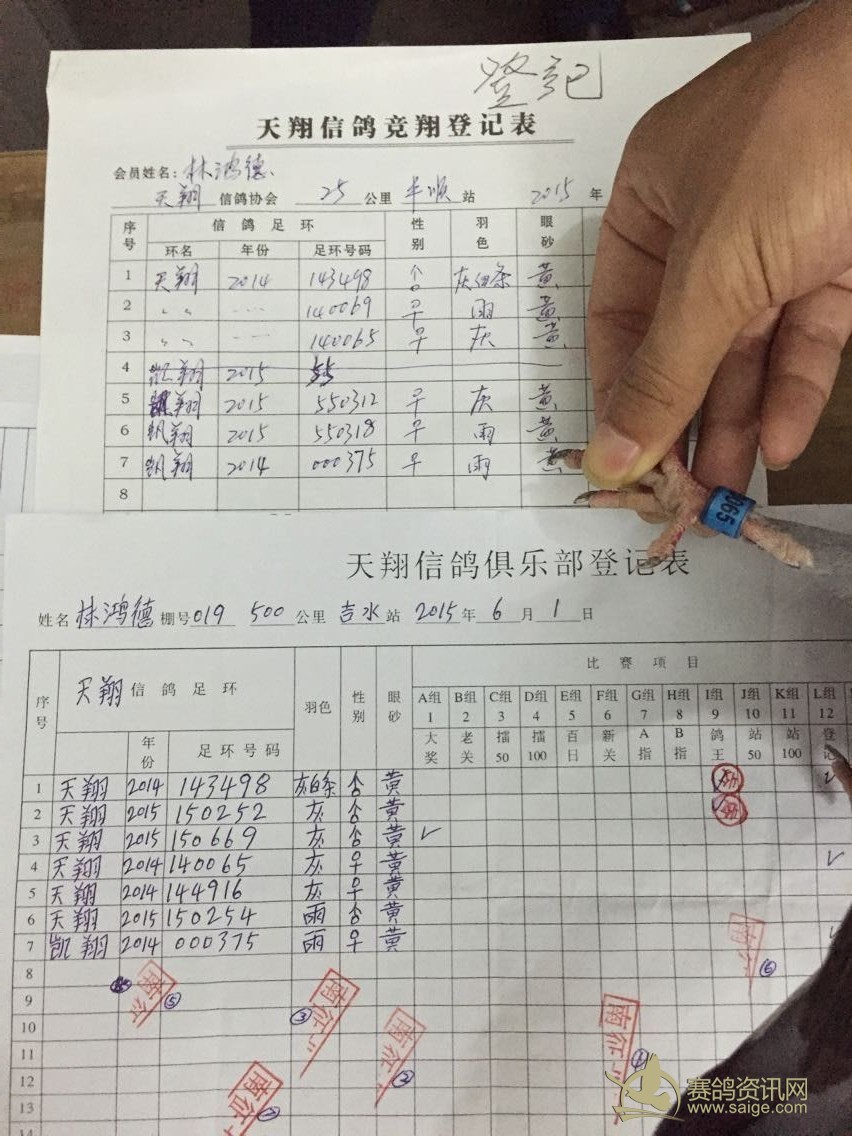 登记
天翔信鸽竞翔登记表
会员姓名：林鸿德
天翔 信鸽协会 25 公里 站 2015 年
序号 信鸽足环 性别 羽色 眼砂
环名 年份 足环号码
1 天翔 2014 143498 灰白条 黄
2 〃 140069 雨 黄
3 〃 140065 灰 黄
4 凯翔 2015 55
5 凯翔 2015 550312 灰 黄
6 凯翔 2015 550318 雨 黄
7 凯翔 2014 000375 雨 黄
8
065
天翔信鸽俱乐部登记表
姓名 林鸿德 棚号 019 500 公里 吉水 站 2015 年 6 月 1 日
序号 天翔 信鸽足环 羽色 性别 眼砂 比赛项目
年份 足环号码
A组 B组 C组 D组 E组 F组 G组 H组 I组 J组 K组 L组
1 2 3 4 5 6 7 8 9 10 11 12
大奖 老关 擂50 擂100 百日 新关 A指 B指 鸽王 站50 站100 登记
1 天翔 2014 143498 灰白条 黄 ✓
2 天翔 2015 150252 灰 黄
3 天翔 2015 150669 灰 黄 ✓
4 天翔 2014 140065 灰 黄 ✓
5 天翔 2014 144916 灰 黄
6 天翔 2015 150254 雨 黄
7 凯翔 2014 000375 雨 黄
8
9
10
11
12
13
南征
⑤
南征
③
南征
②
南征
南征
南征
⑥
赛鸽资讯网
www.saige.com